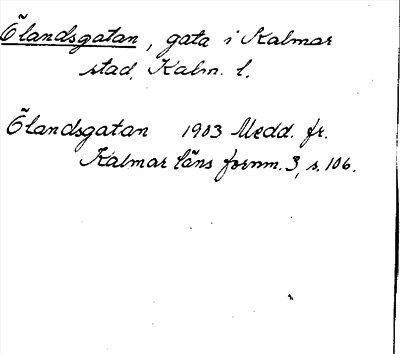 Ölandsgatan, gata i Kalmar
stad, Kalm. l.
Ölandsgatan 1903 Medd. fr.
Kalmar läns fornm. 3, s. 106.